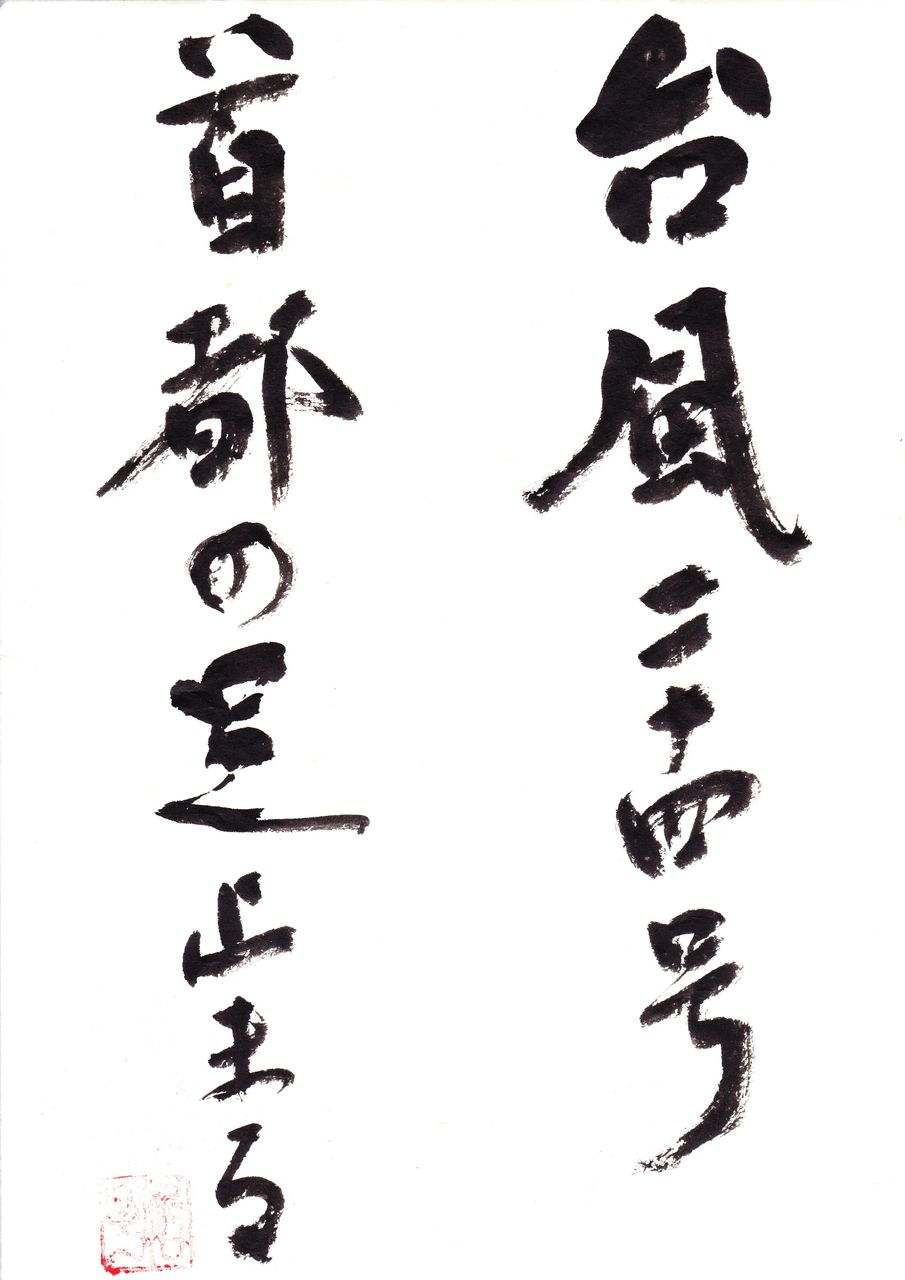 台風二十四号
首都の足止まる